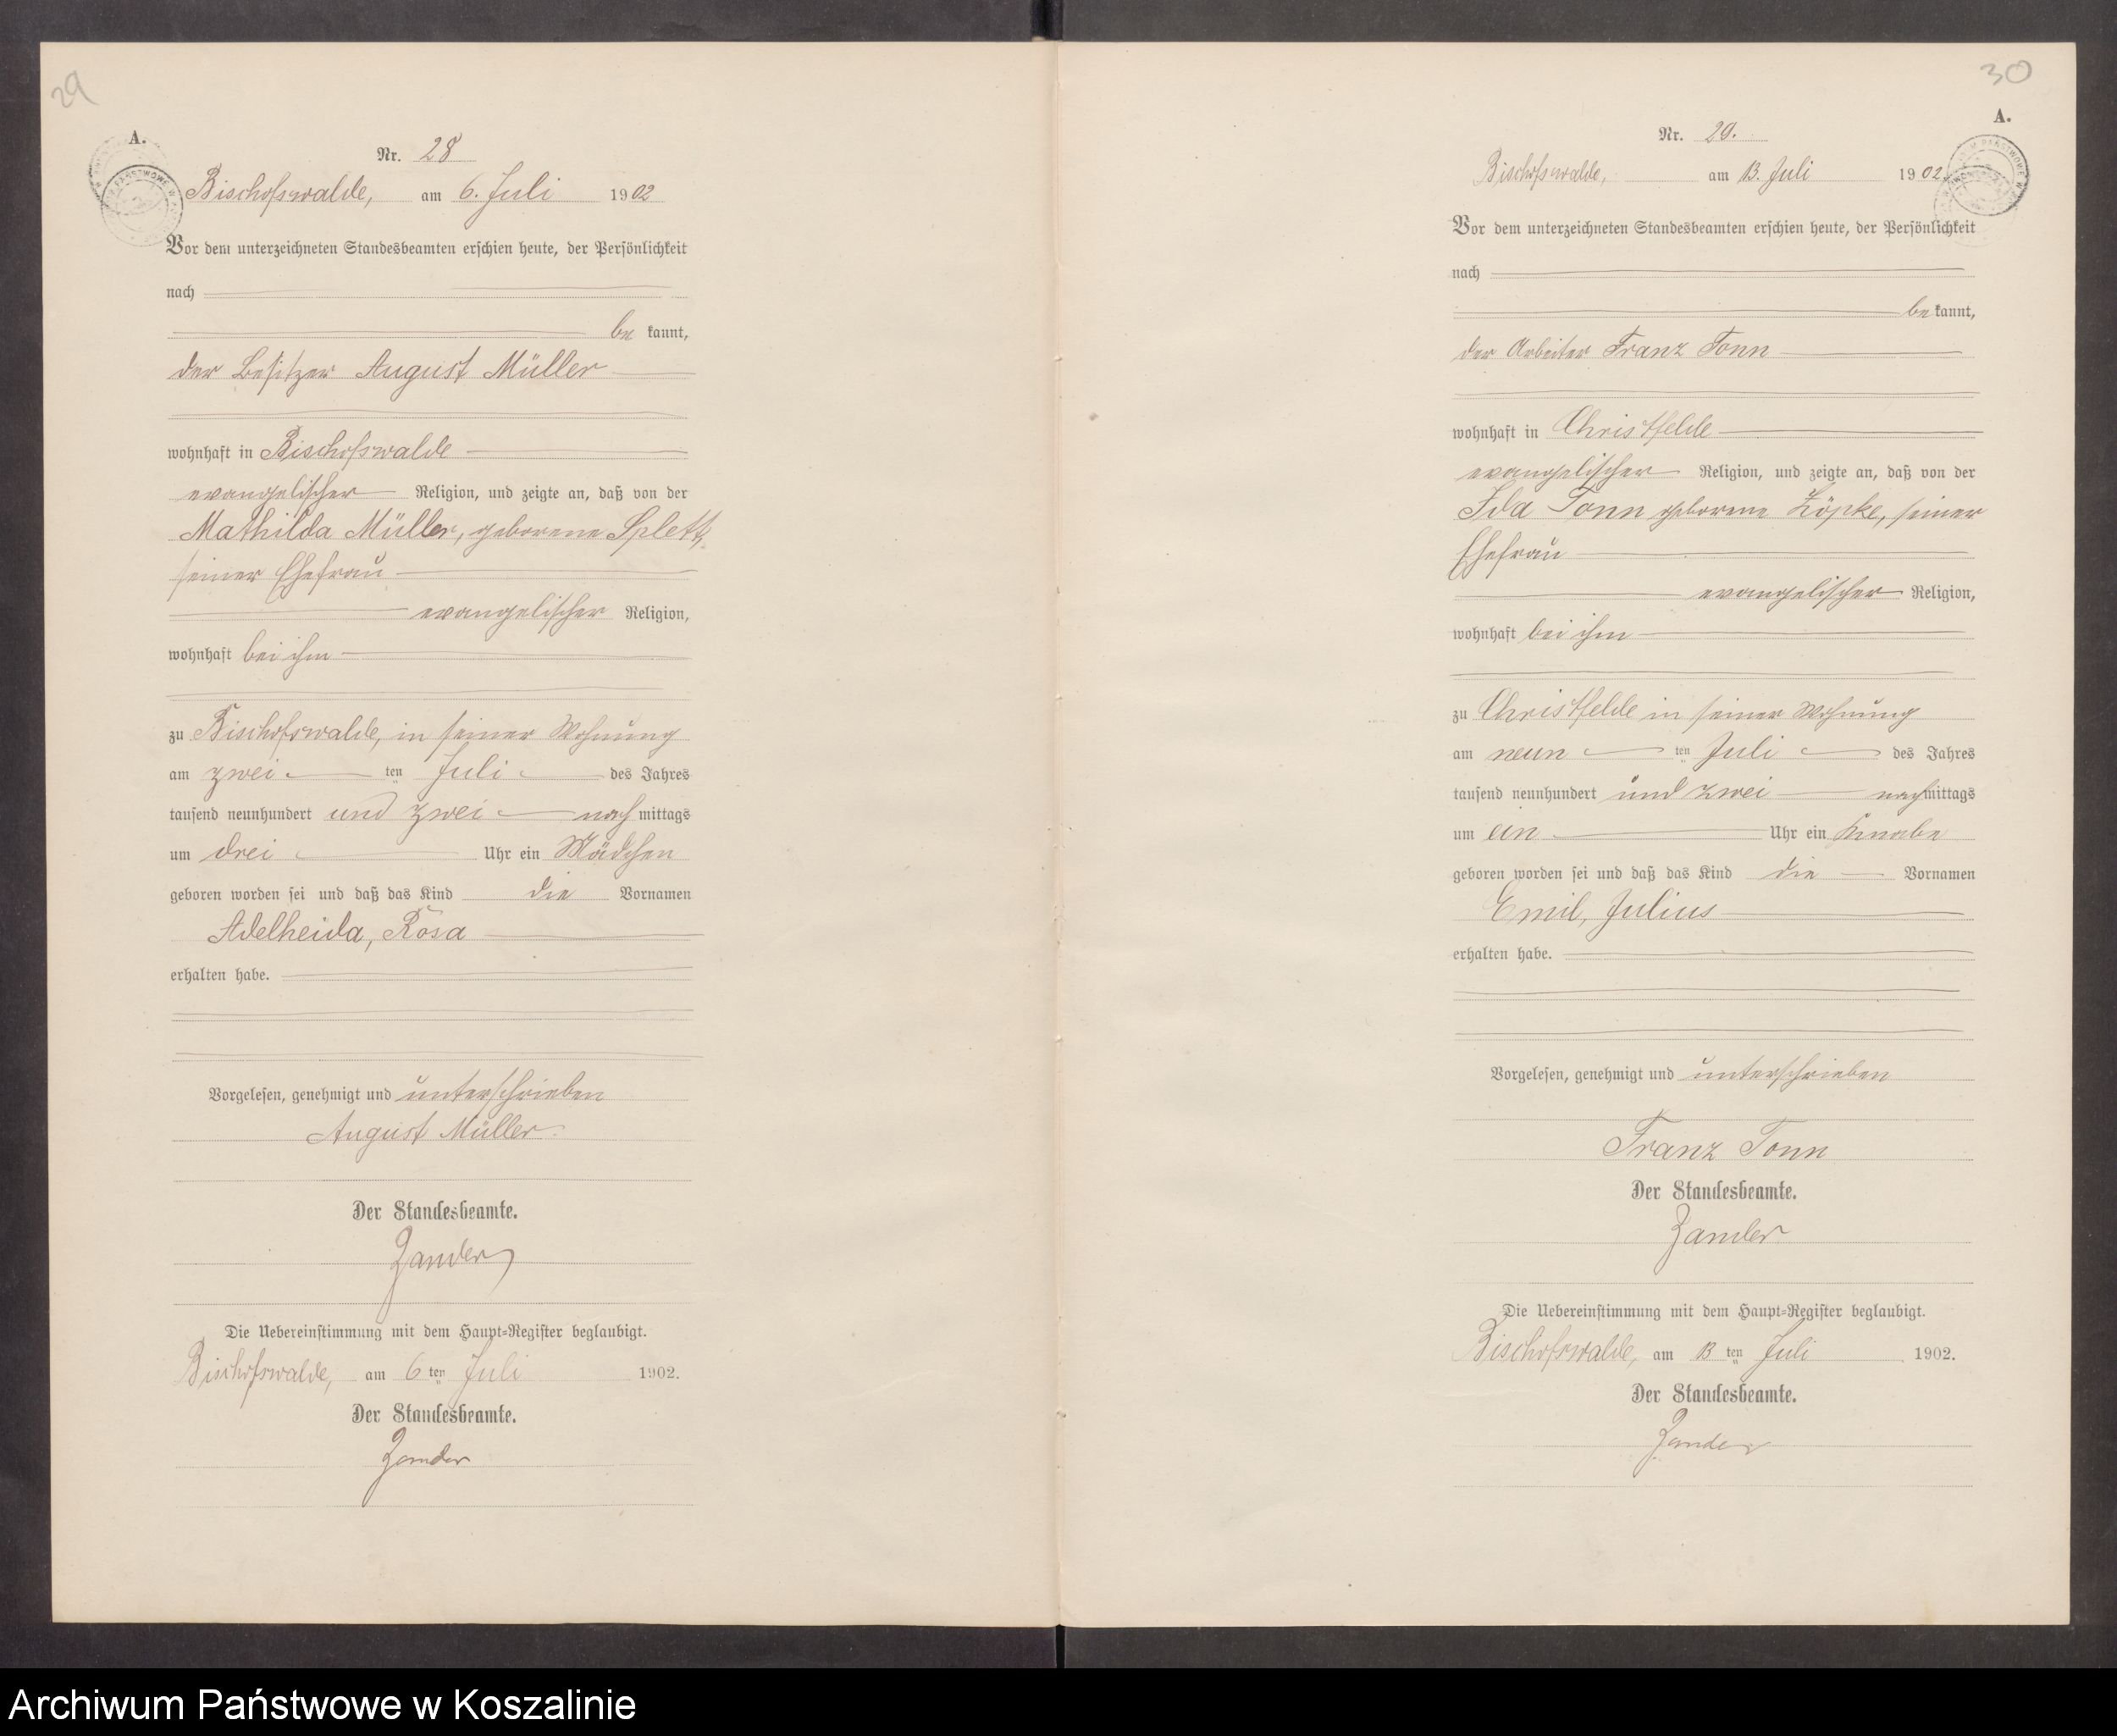 29
A.
Nr. 28
Bischofswalde, am 6. Juli 1902
Vor dem unterzeichneten Standesbeamten erschien heute, der Persönlichkeit
nach
be kannt,
der Besitzer August Müller
wohnhaft in Bischofswalde
evangelischer Religion, und zeigte an, daß von der
Mathilda Müller, geborene Splett,
seiner Ehefrau
evangelischer Religion,
wohnhaft bei ihm
zu Bischofswalde, in seiner Wohnung
am zwei ten Juli des Jahres
tausend neunhundert und zwei nach mittags
um drei Uhr ein Mädchen
geboren worden sei und daß das Kind die Vornamen
Adelheida, Rosa
erhalten habe.
Vorgelesen, genehmigt und unterschrieben
August Müller.
Der Standesbeamte.
Zander
Die Uebereinstimmung mit dem Haupt-Register beglaubigt.
Bischofswalde, am 6 ten Juli 1902.
Der Standesbeamte.
Zander
30
A.
Nr. 29.
Bischofswalde, am 13. Juli 1902
Vor dem unterzeichneten Standesbeamten erschien heute, der Persönlichkeit
nach
be kannt,
der Arbeiter Franz Tonn
wohnhaft in Christfelde
evangelischer Religion, und zeigte an, daß von der
Ida Tonn geborene Köpke, seiner
Ehefrau
evangelischer Religion,
wohnhaft bei ihm
zu Christfelde in seiner Wohnung
am neun ten Juli des Jahres
tausend neunhundert und zwei nach mittags
um ein Uhr ein Knabe
geboren worden sei und daß das Kind die Vornamen
Emil, Julius
erhalten habe.
Vorgelesen, genehmigt und unterschrieben
Franz Tonn
Der Standesbeamte.
Zander
Die Uebereinstimmung mit dem Haupt-Register beglaubigt.
Bischofswalde, am 13 ten Juli 1902.
Der Standesbeamte.
Zander
Archiwum Państwowe w Koszalinie